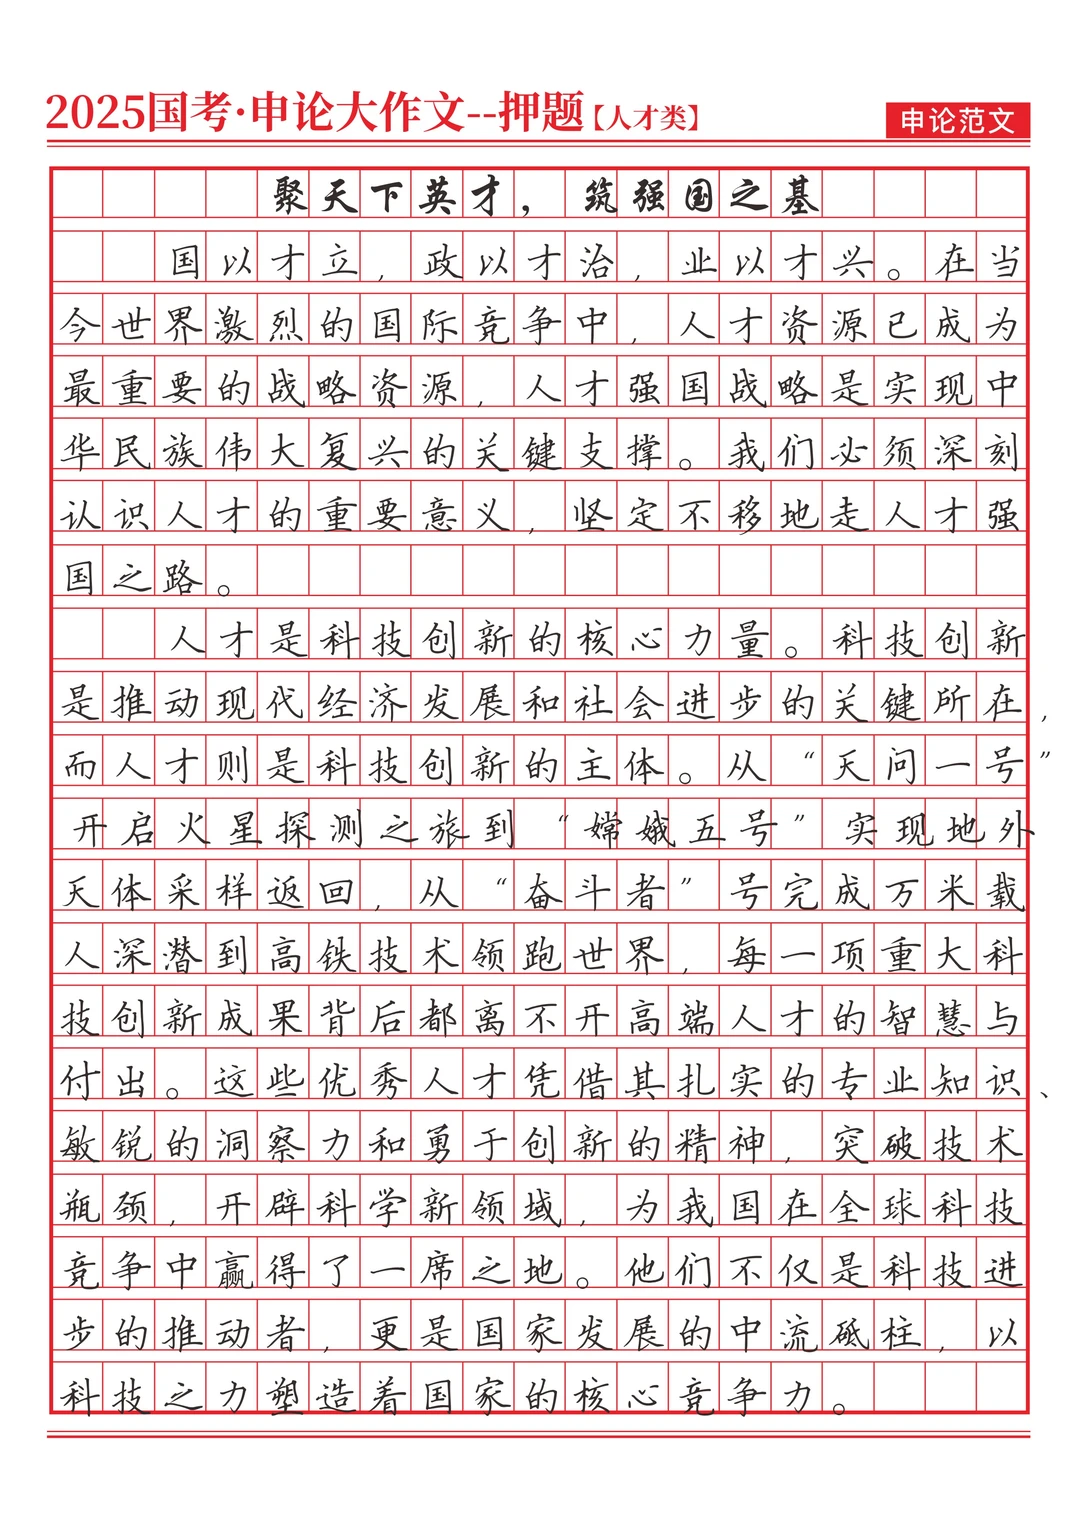 2025国考·申论大作文--押题【人才类】
申论范文
聚天下英才，筑强国之基
国以才立，政以才治，业以才兴。在当
今世界激烈的国际竞争中，人才资源已成为
最重要的战略资源，人才强国战略是实现中
华民族伟大复兴的关键支撑。我们必须深刻
认识人才的重要意义，坚定不移地走人才强
国之路。
人才是科技创新的核心力量。科技创新
是推动现代经济发展和社会进步的关键所在，
而人才则是科技创新的主体。从“天问一号”
开启火星探测之旅到“嫦娥五号”实现地外
天体采样返回，从“奋斗者”号完成万米载
人深潜到高铁技术领跑世界，每一项重大科
技创新成果背后都离不开高端人才的智慧与
付出。这些优秀人才凭借其扎实的专业知识、
敏锐的洞察力和勇于创新的精神，突破技术
瓶颈，开辟科学新领域，为我国在全球科技
竞争中赢得了一席之地。他们不仅是科技进
步的推动者，更是国家发展的中流砥柱，以
科技之力塑造着国家的核心竞争力。